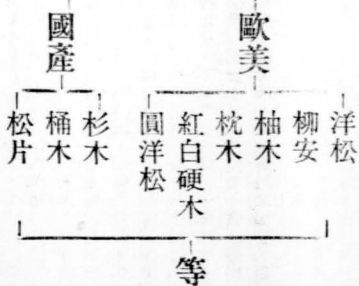 歐美
洋松
柳安
柚木
枕木
紅白硬木
圓洋松
國產
杉木
桶木
松片
等